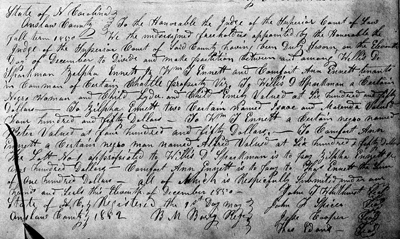 State of N. Carolina
Onslow County To the Honorable the Judge of the Superior Court of Said
fall term 1850 We the undersigned freeholders appointed by the Honorable the
Judge of the Superior Court of Said County having been Duly Sworn on the Eleventh
Day of December to Divide and make partition between and among Willis D.
Spearman Zilpha Ennett & Wm T Ennett and Comfort Ann Ennett tenants
in Common of Certain Chattle property Viz To Willis D Spearman a Certain
Negro Woman and Child Valued at Six hundred and fifty
Dollars To Zilpha Ennett two Certain Named Isaac and Malinda Valued
four hundred and fifty Dollars To Wm T Ennett a Certain negro named
Peter Valued at four hundred and fifty Dollars. To Comfort Ann
Ennett a Certain negro man named Alfred Valued at Six hundred & fifty Dollars
Lott No 1 appropriated to Willis D Spearman is to pay Zilpha Ennett
One Hundred Dollars Comfort Ann Ennett is to pay to the Sum
of One Hundred Dollars all of which is Respectfully Submitted under our
hands and Seals this Eleventh of December 1850
State of N.C. Registered the 1st Day may John F
Onslow County 1852 John F Spicer
B M Jesse Cooper
Thos Davis